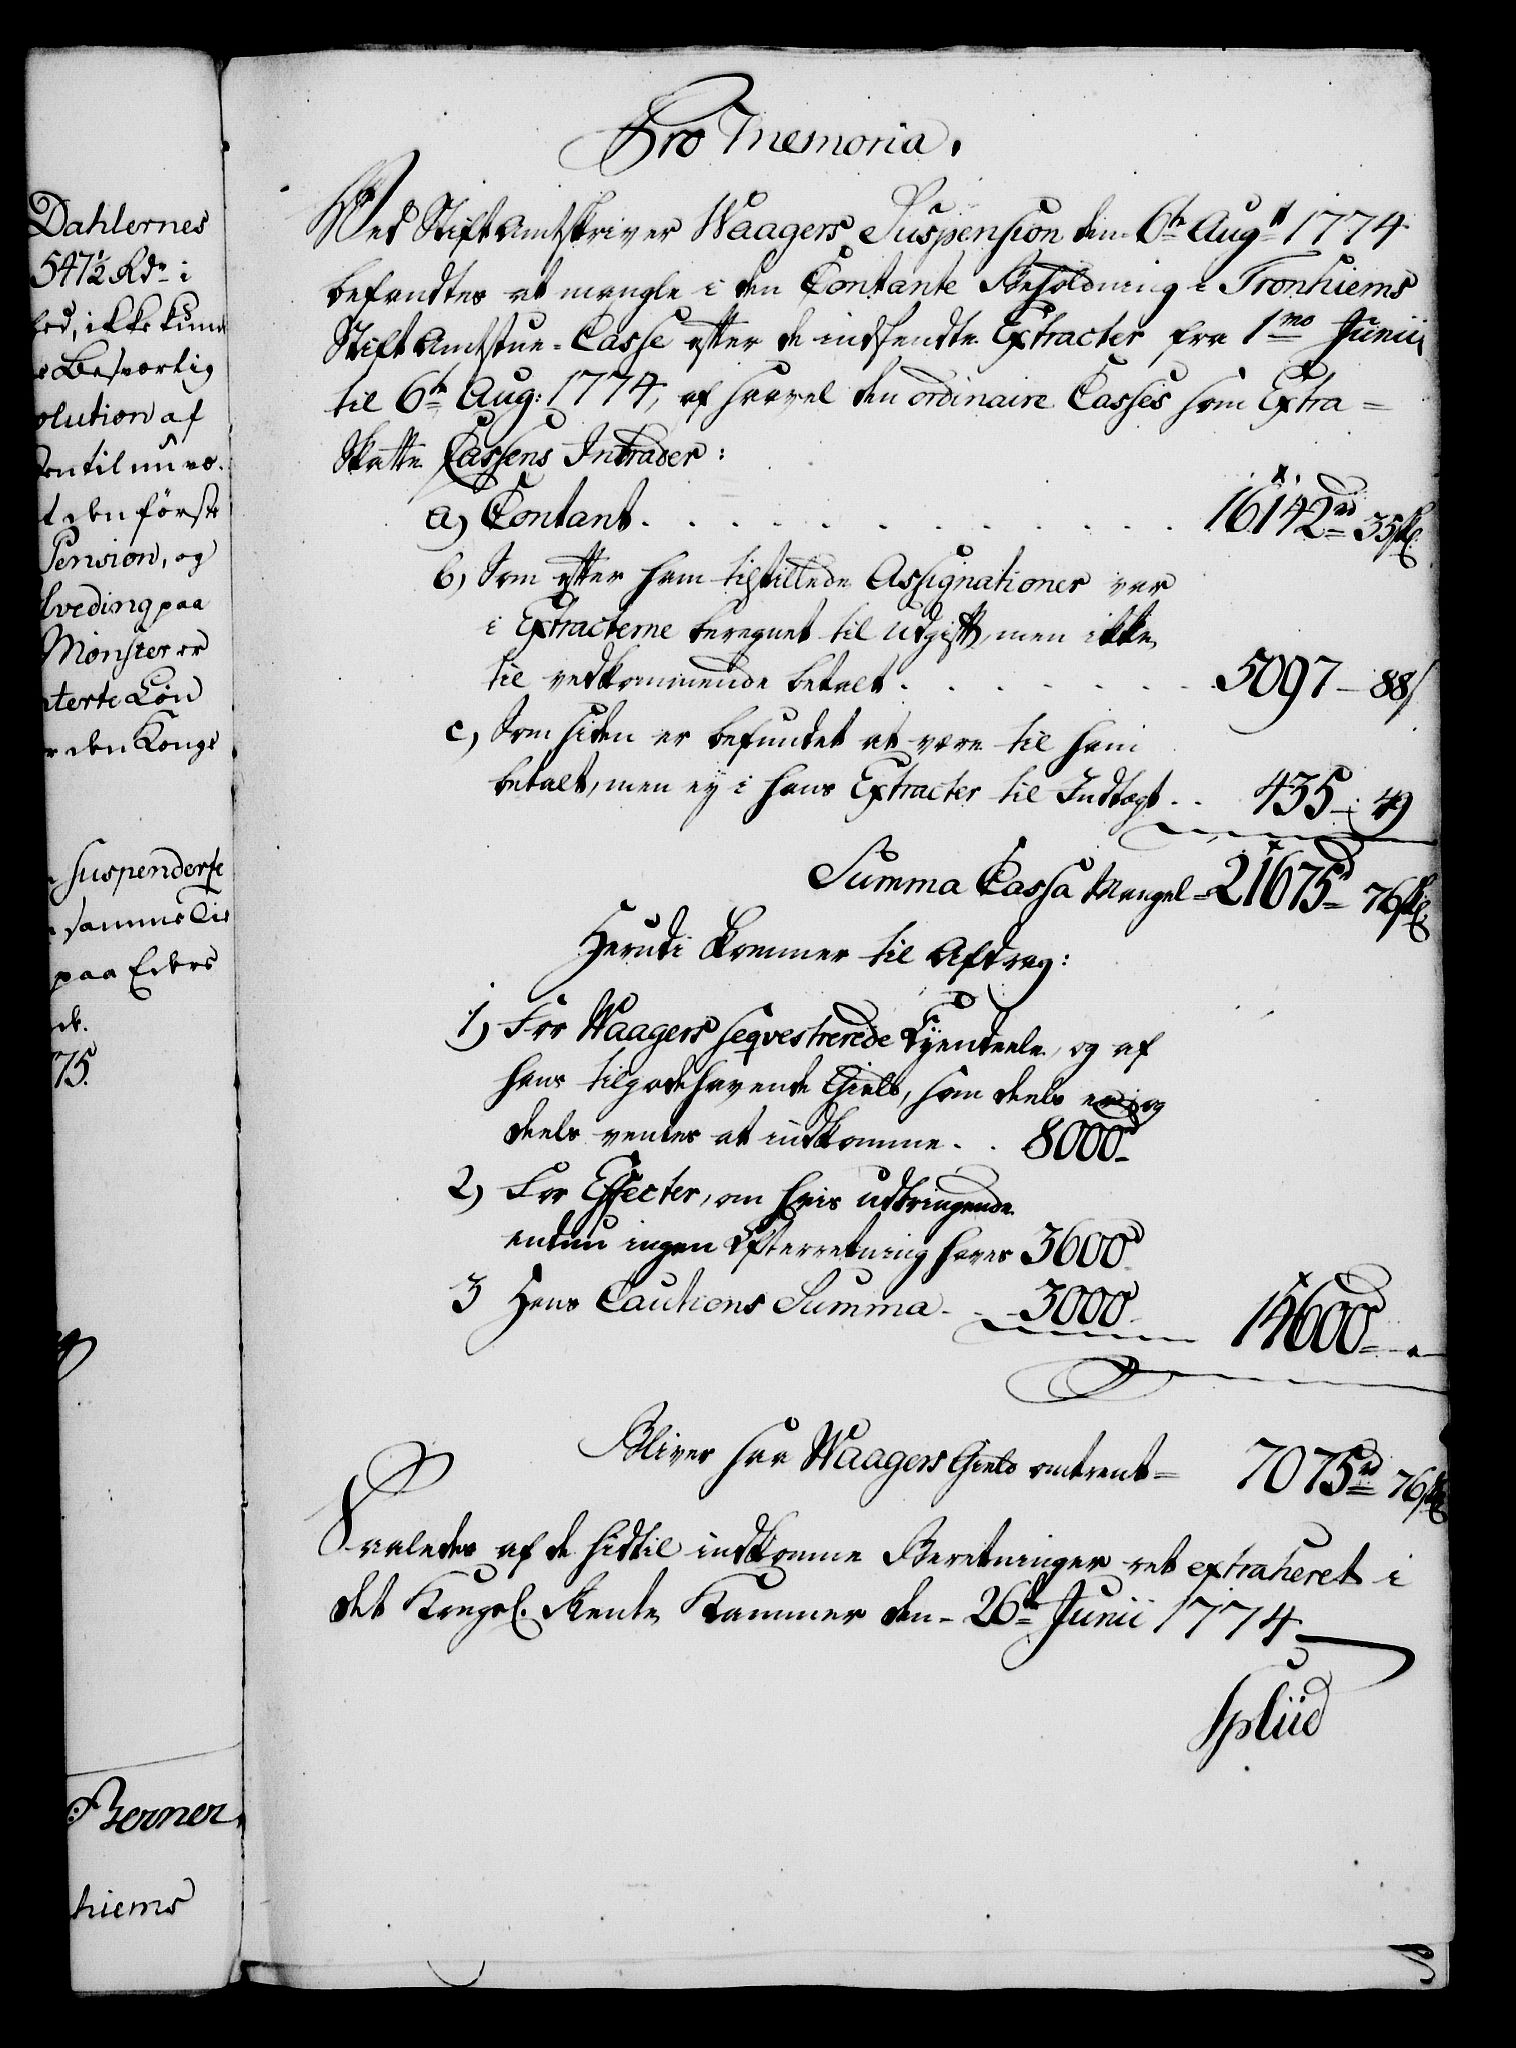 Dahlernes
547½ Rdr i
hed, ikke kunde
Besværlig
olution af
til nu væ-
t den første
Pension, og
lveding paa
Mønster er
terte Løn
den Kongs
suspenderte
samme Tie
paa Eders
75.
Berner
hiems
Pro Memoria.
Ved Stift Amtskriver Waagers Suspension den 6te Augti 1774
befandtes at mangle i den Contante Beholdning i Tronhiems
Stift Amtstue-Casse efter de indsendte Extracter fra 1mo Junii
til 6te Aug: 1774, af saavel den ordinaire Casses som Extra=
Skatte Cassens Intrader:
a) Contant . . . . . . . . . . 16142rd 35sk.
b) Som efter ham tilstillede Assignationer var
i Extracterne beregnet til Udgift, men ikke
til vedkommende betalt . . . . . . . 5097 - 88/
c) Som siden er befundet at være til ham
betalt, men ey i hans Extracter til Indtægt . . 435 - 49
Summa Cassa Mangel = 21675d= 76sk
Herudi kommer til Afdrag:
1) For Waagers seqvestrerede Eyendeele, og af
hans tilgodehavende Gield, som deels er, og
deels ventes at indkomme . . 8000d
2) For Effecter, om hvis udbringende
endnu ingen Efterretning haves 3600d
3 Hans Cautions Summa . . 3000 14600d=
Bliver saa Waagers Gield omtrent= 7075rd= 76sk
Saaledes af de hidtil indkomne Beretninger ret extraheret i
det Kongel. Rente Kammer den 26te Junii 1774
Spliid